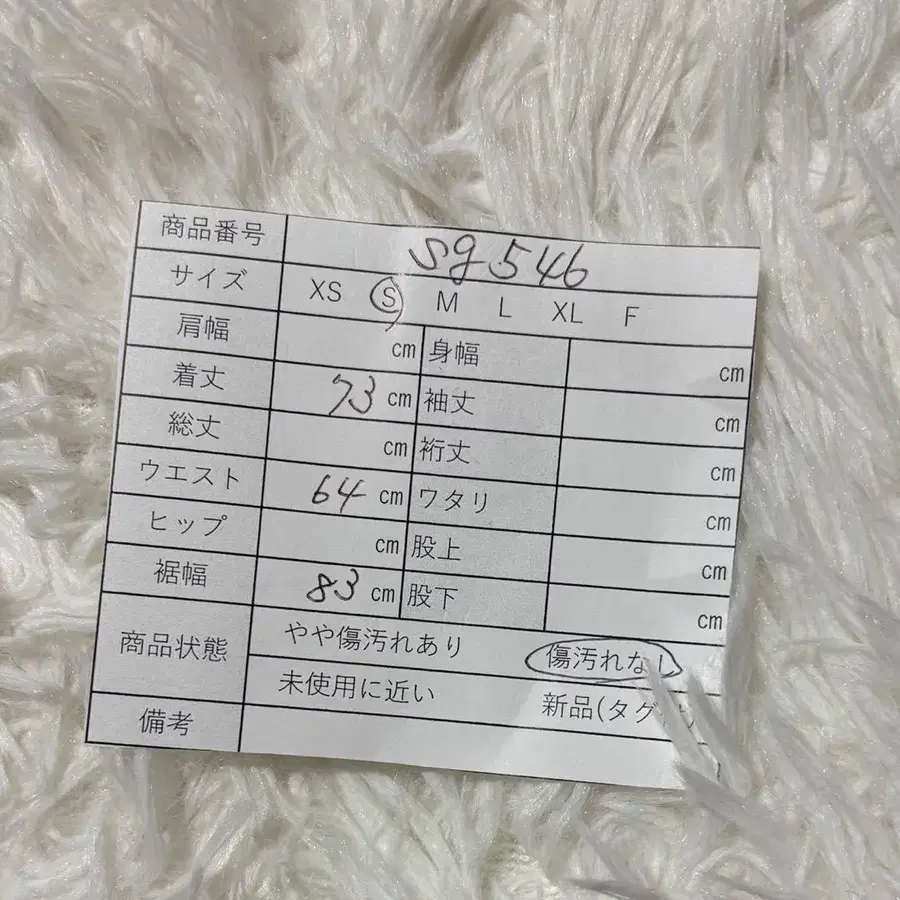 商品番号 sg546
サイズ XS S M L XL F
肩幅 cm 身幅 cm
着丈 73 cm 袖丈 cm
総丈 cm 裄丈 cm
ウエスト 64 cm ワタリ cm
ヒップ cm 股上 cm
裾幅 83 cm 股下 cm
商品状態 やや傷汚れあり 傷汚れなし
未使用に近い 新品(タグ
備考